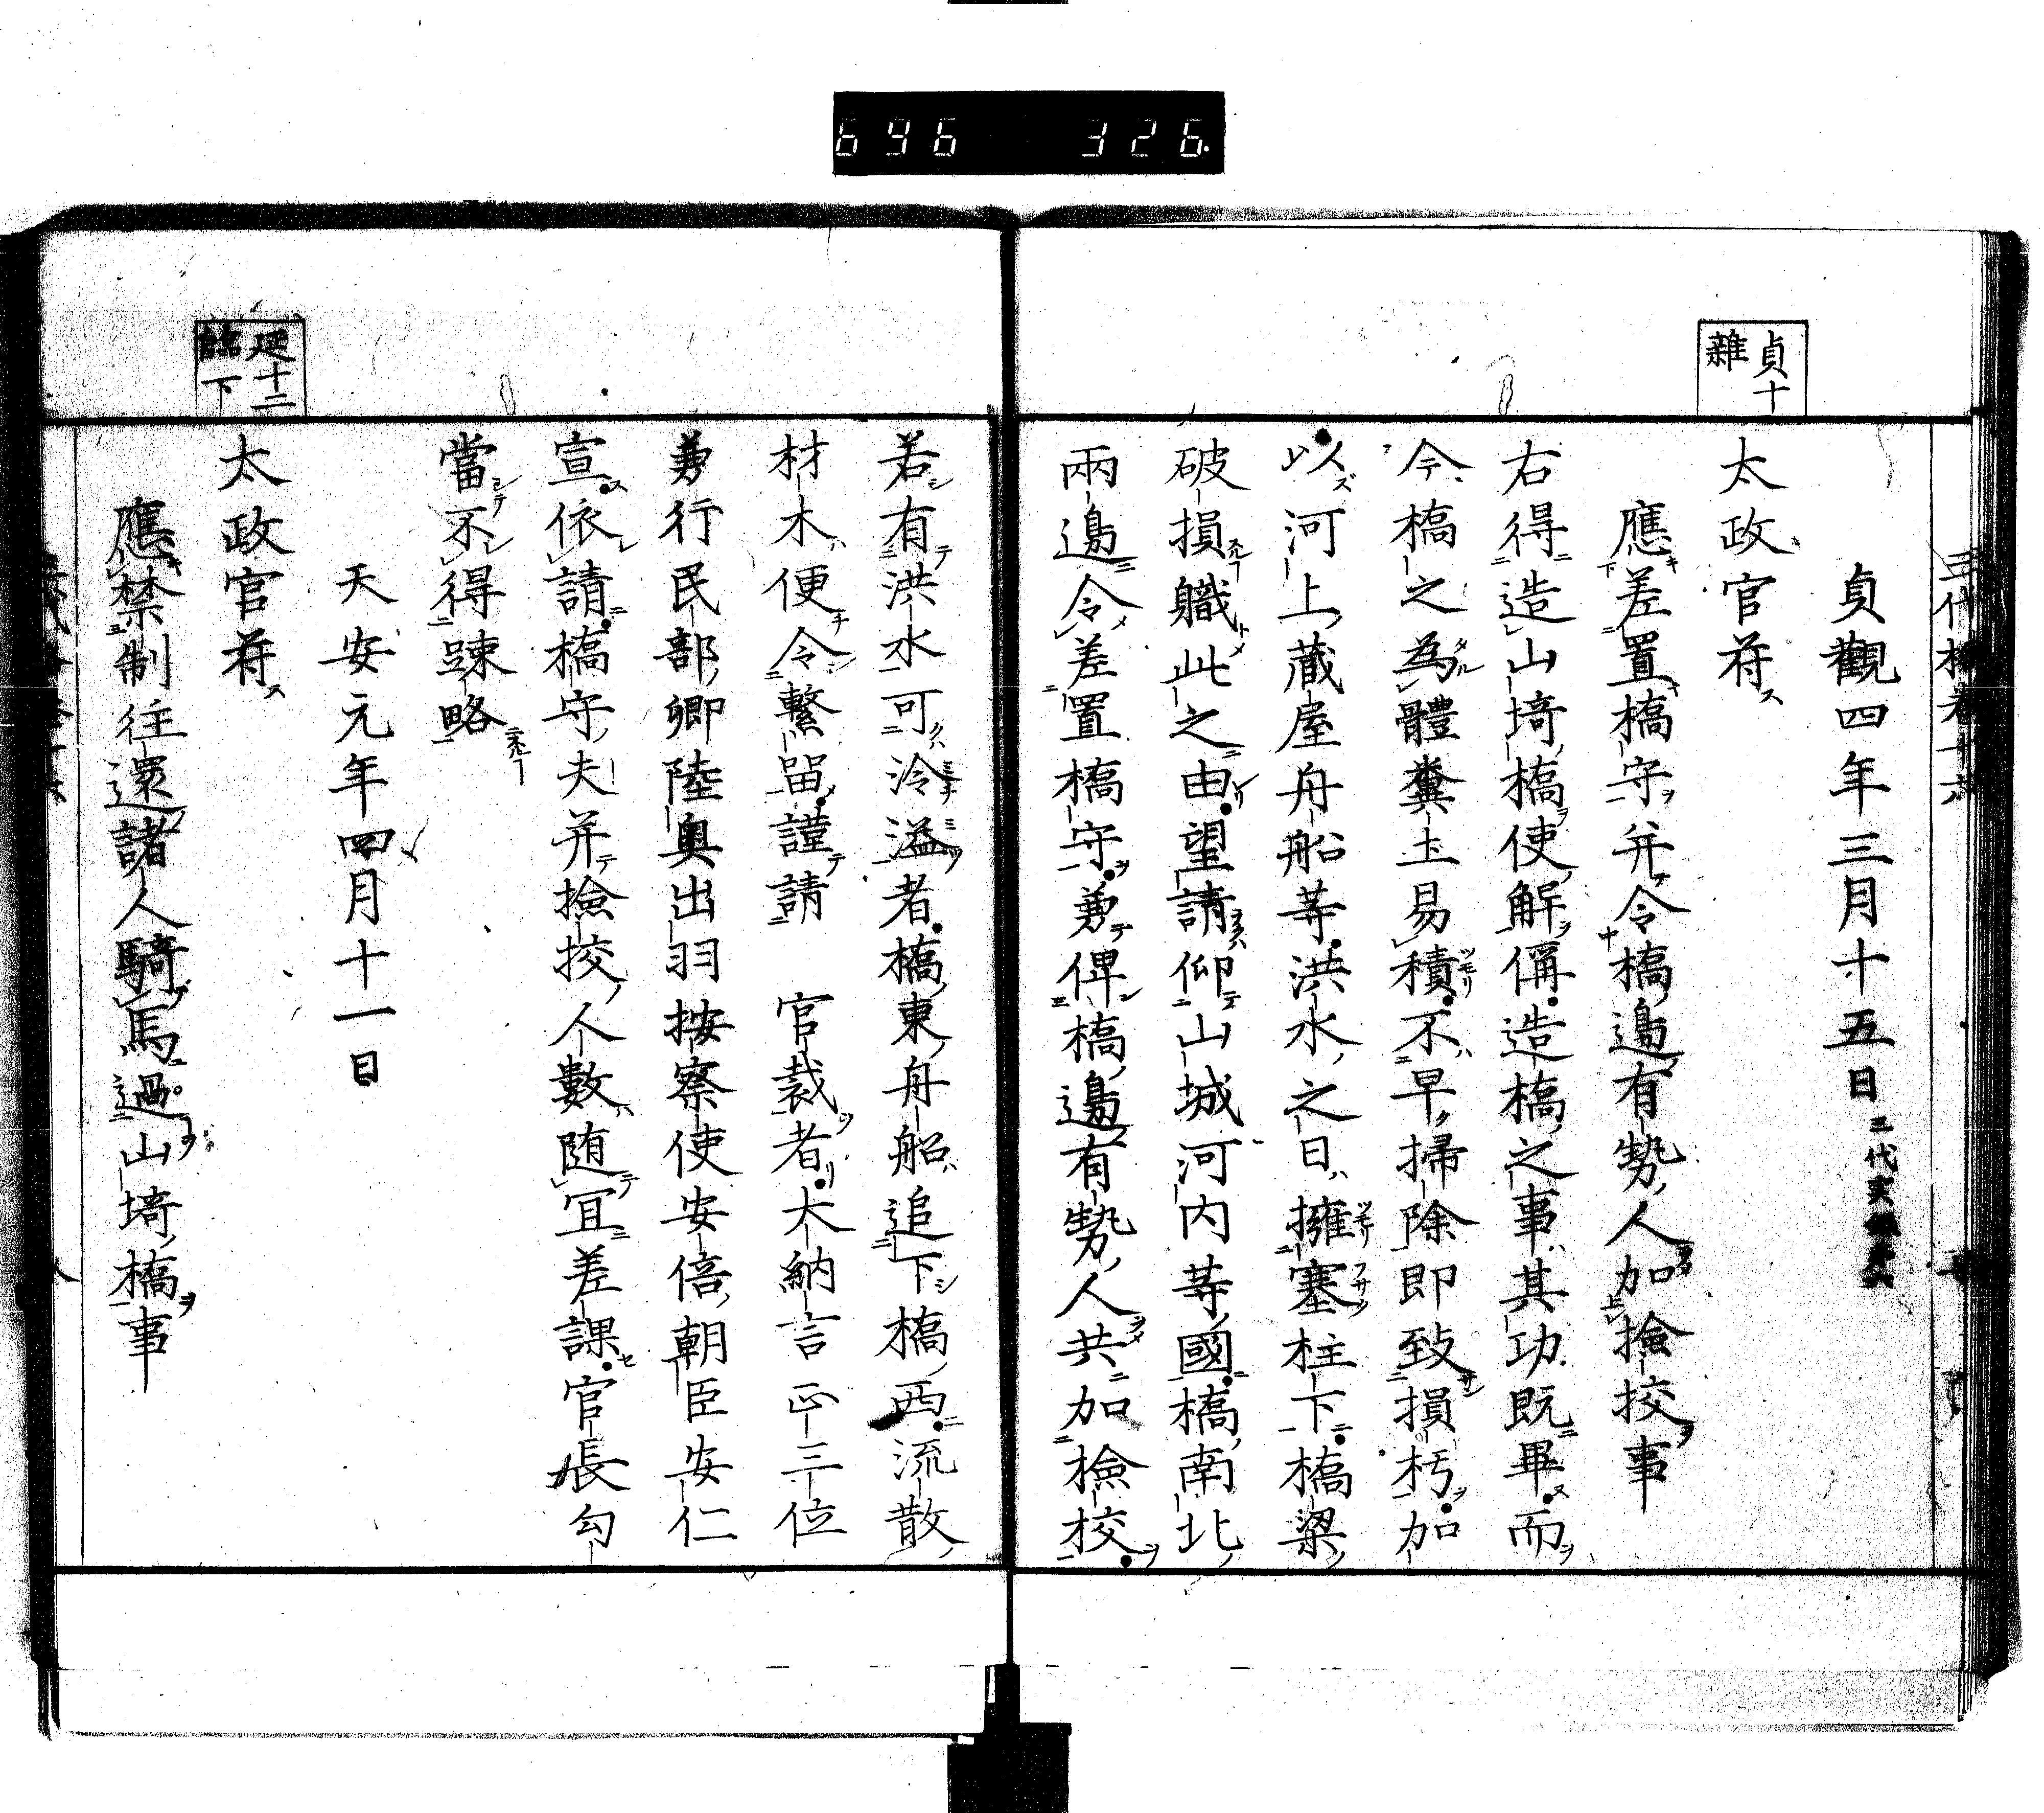 696 326.
貞觀四年三月十五日 三代実
貞十
雜
太政官符ス
應差置橋守并令橋邊有勢人加撿挍事
右得造山埼橋使解偁造橋之事其功既畢而
今橋之為體糞土易積不早掃除即致損朽加
以河上蔵屋舟船等洪水之日擁塞柱下橋梁
破損軄此之由望請仰山城河内等國橋南北
兩邊令差置橋守兼俾橋邊有勢人共加檢校
若有洪水可泠溢者橋東舟船追下橋西流散
材木便令繫留謹請 官裁者大納言正三位
兼行民部卿陸奥出羽按察使安倍朝臣安仁
宣依請橋守夫并撿挍人數随宜差課官長勾
當不得踈略
天安元年四月十一日
延十二
臨下
太政官符ス
應禁制往還諸人騎馬過山埼橋事